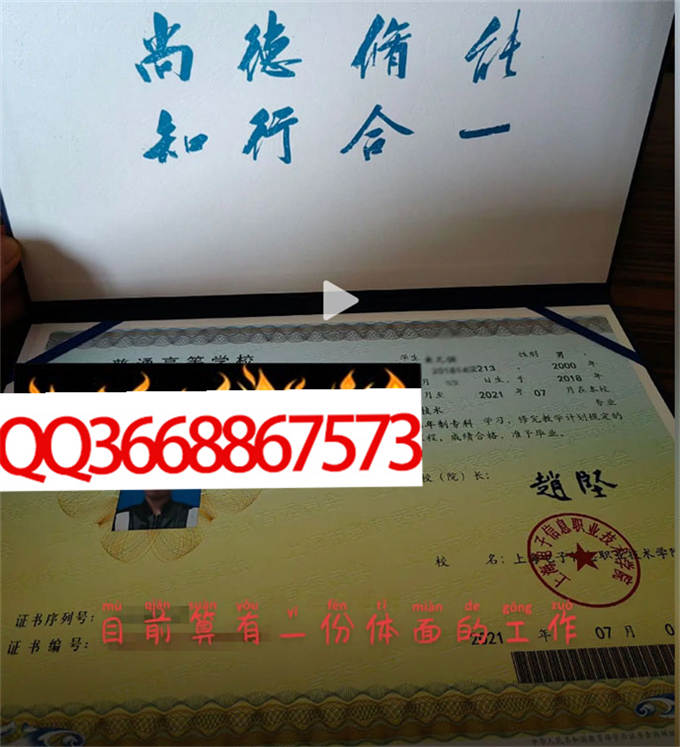 尚德脩能
知行合一
普通高等学校
学生 213, 性别 男,
2000 年
月 日生,于 2018
2021 年 07 月在本校
专业
技术
年制专科 学习,修完教学计划规定的
成绩合格,准予毕业。
QQ3668867573
校(院)长: 趙堅
上海电子信息职业技术学院
校 名:上 职业技术学院
证书序列号:
mù qián suàn yǒu yī fèn tǐ miàn de gōng zuò
目前算有一份体面的工作
证书编号:
2021 年 07 月 0